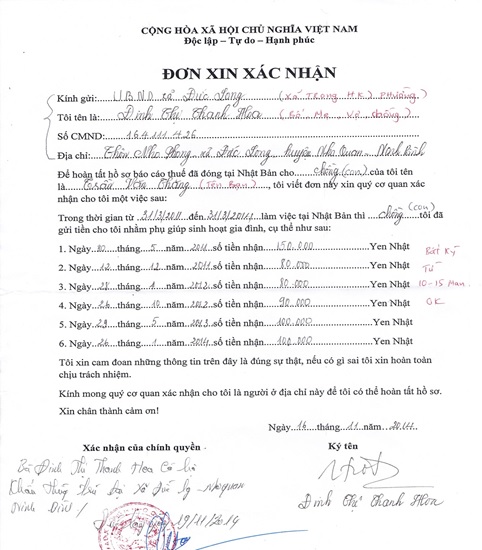 CỘNG HÒA XÃ HỘI CHỦ NGHĨA VIỆT NAM
Độc lập – Tự do – Hạnh phúc
ĐƠN XIN XÁC NHẬN
Kính gửi: U.B.N.D xã Đức Long (Xã Trong HK) Phường
Tôi tên là: Đinh Thị Thanh Hoa (Bố Mẹ, Vợ chồng)
Số CMND: 164111426
Địa chỉ: Thôn Nho Phong xã Đức Long, huyện Nho Quan - Ninh Bình
Để hoàn tất hồ sơ báo cáo thuế đã đóng tại Nhật Bản cho chồng (con) của tôi tên
là Trần Văn Thắng (Tên Bạn), tôi viết đơn này xin quý cơ quan xác
nhận cho tôi một việc sau:
Trong thời gian từ 31/3/2011 đến 31/3/2014 làm việc tại Nhật Bản thì chồng (con) tôi đã
gửi tiền cho tôi nhằm phụ giúp sinh hoạt gia đình, cụ thể như sau:
1. Ngày 20 tháng 5 năm 2011 số tiền nhận 150.000 Yen Nhật Bất Kỳ
2. Ngày 12 tháng 12 năm 2011 số tiền nhận 80.000 Yen Nhật Từ
3. Ngày 28 tháng 4 năm 2012 số tiền nhận 80.000 Yen Nhật 10-15 Man
4. Ngày 26 tháng 10 năm 2012 số tiền nhận 90.000 Yen Nhật OK
5. Ngày 29 tháng 5 năm 2013 số tiền nhận 100.000 Yen Nhật
6. Ngày 26 tháng 1 năm 2014 số tiền nhận 100.000 Yen Nhật
Tôi xin cam đoan những thông tin trên đây là đúng sự thật, nếu có gì sai tôi xin hoàn toàn
chịu trách nhiệm.
Kính mong quý cơ quan xác nhận cho tôi là người ở địa chỉ này để tôi có thể hoàn tất hồ sơ.
Xin chân thành cảm ơn!
Ngày 16 tháng 11 năm 2014
Xác nhận của chính quyền Ký tên
Bà Đinh Thị Thanh Hoa Có hộ
khẩu thường trú tại xã Đức Long - Nho quan
Ninh Bình /
19/11/2014
Đinh Thị Thanh Hoa